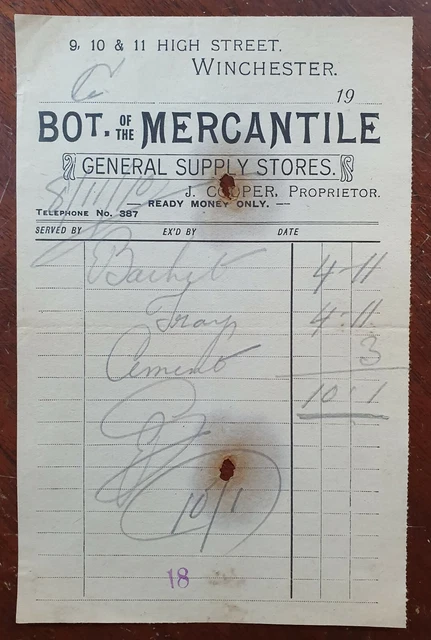 9, 10 & 11 HIGH STREET,
WINCHESTER.
19
BOT. OF THE MERCANTILE
GENERAL SUPPLY STORES.
J. COOPER, PROPRIETOR.
— READY MONEY ONLY. —
TELEPHONE No. 387
SERVED BY EX'D BY DATE
4-11
Tray 4.11
Cement 3
10.1
10/1
18